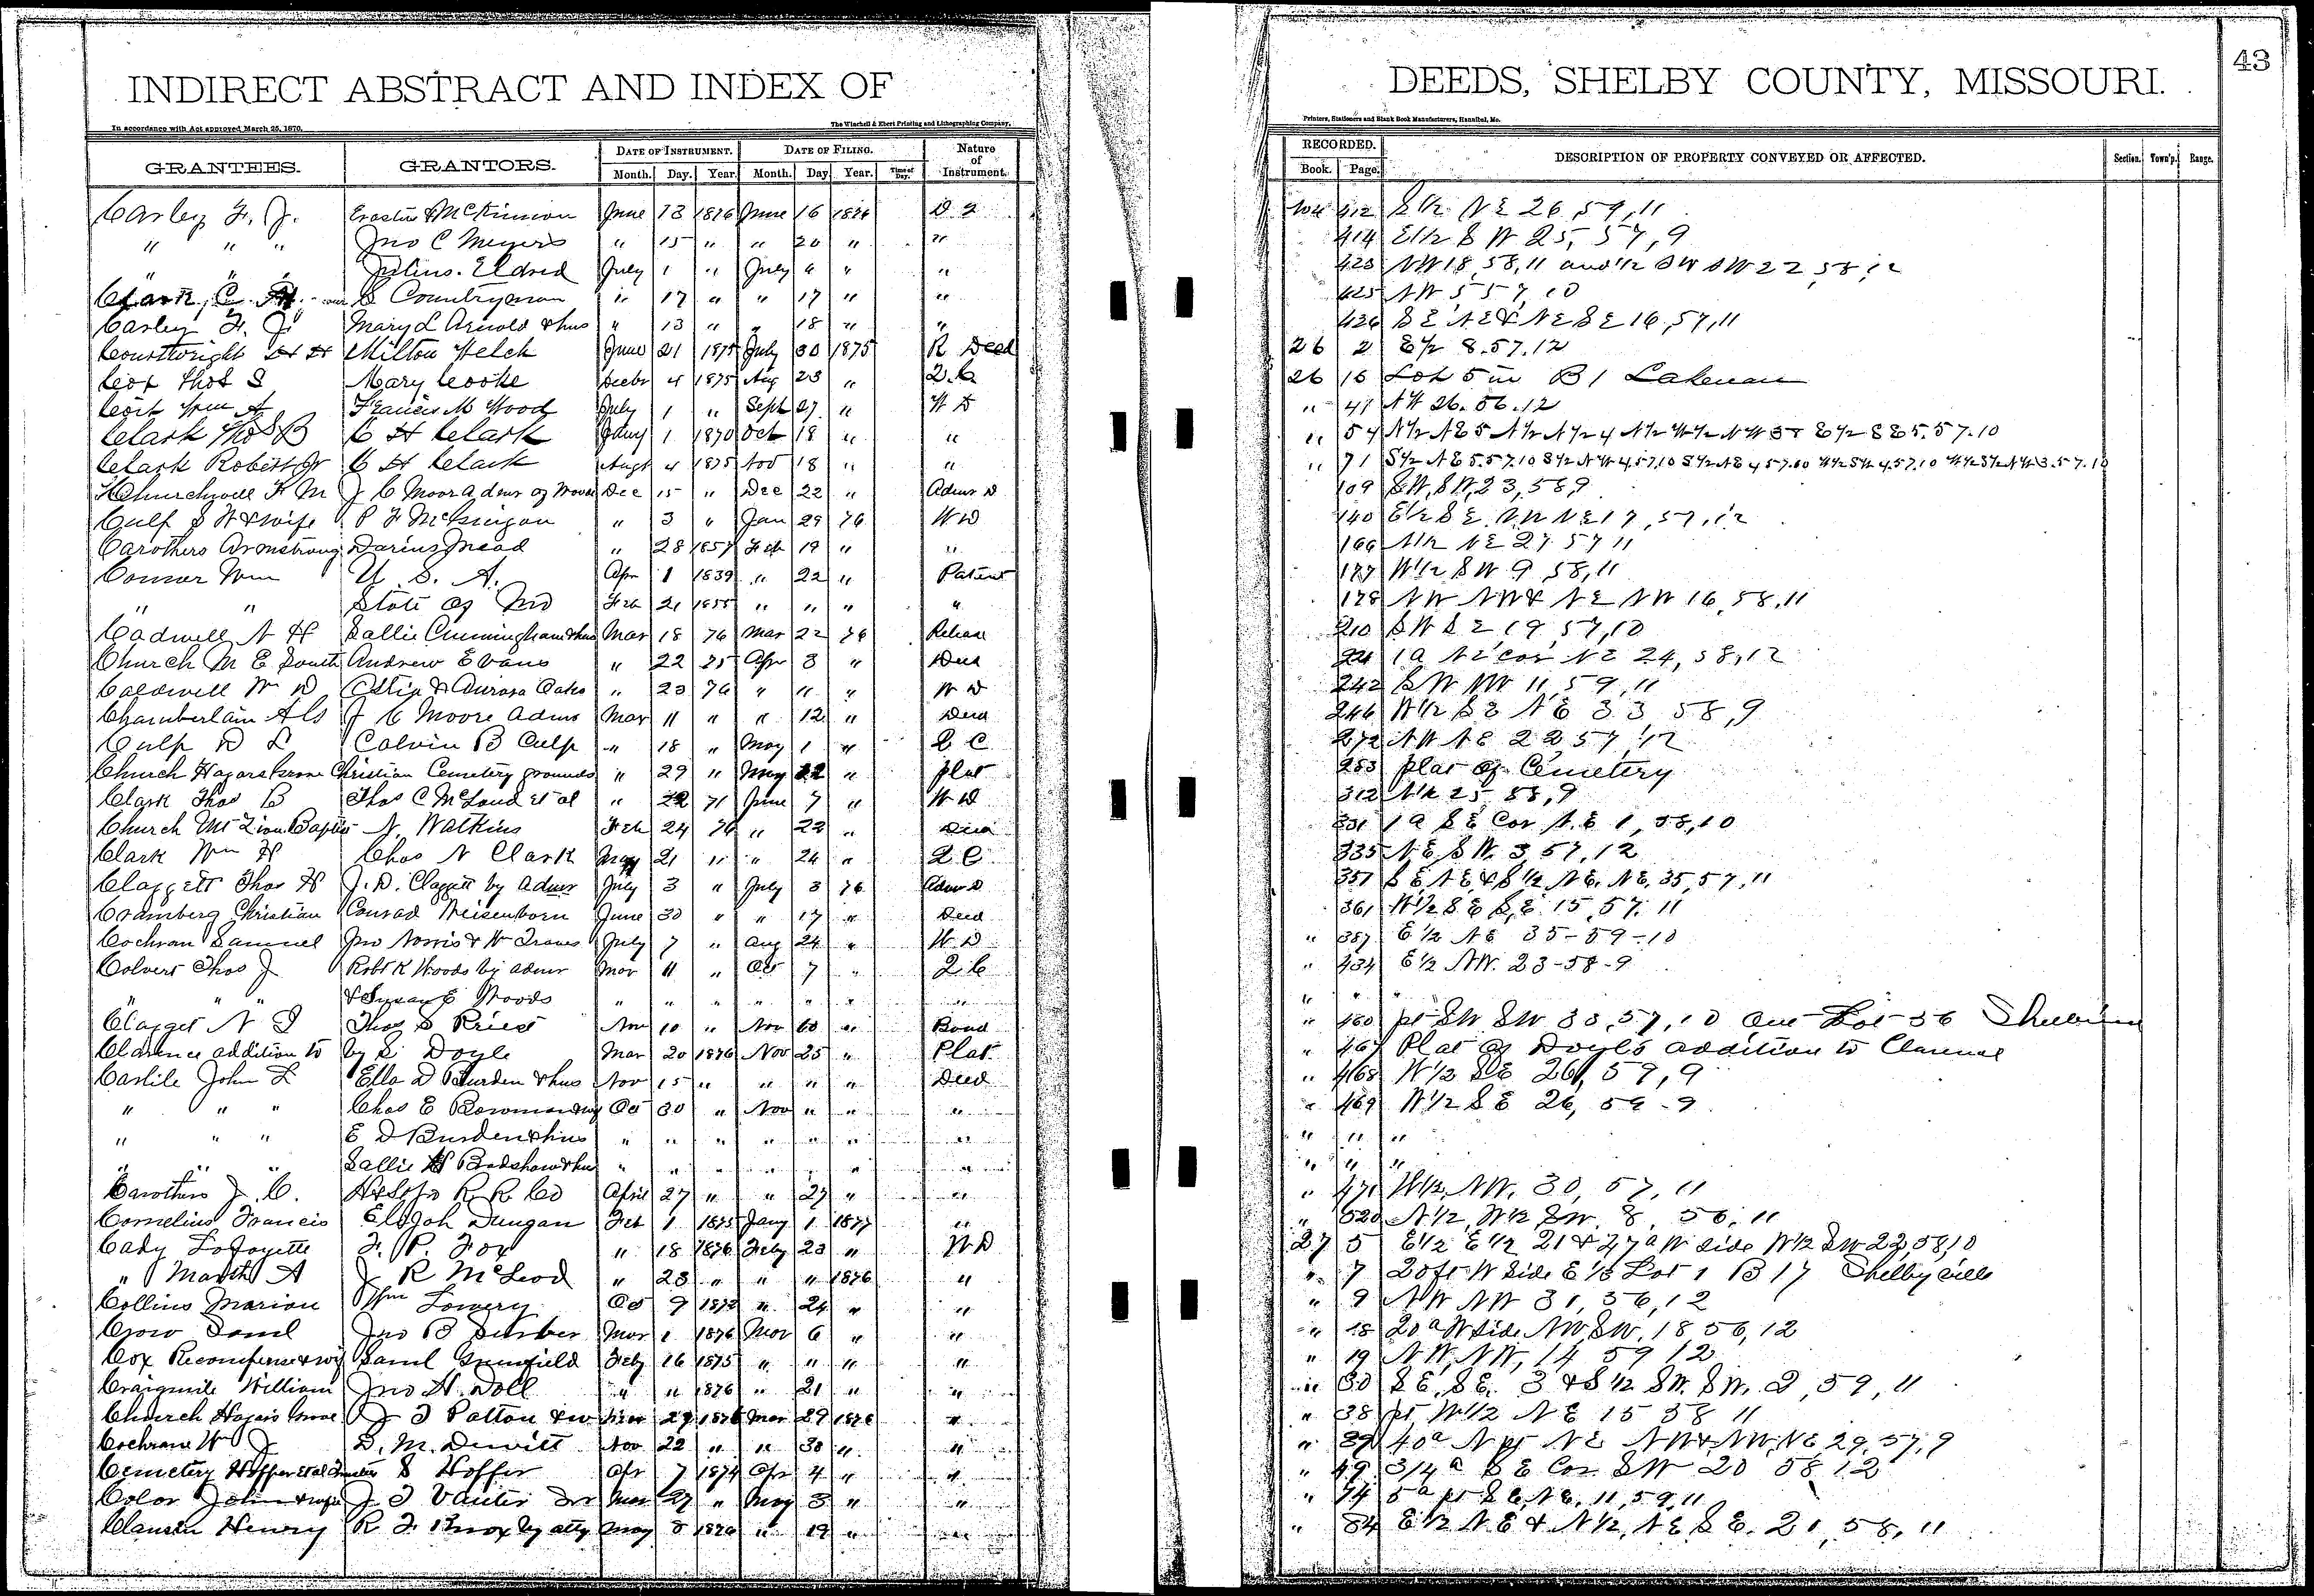 INDIRECT ABSTRACT AND INDEX OF DEEDS, SHELBY COUNTY, MISSOURI. 43
In accordance with Act approved March 25, 1870. The Winchell & Ebert Printing and Lithographing Company, Printers, Stationers and Blank Book Manufacturers, Hannibal, Mo.
GRANTEES. GRANTORS. DATE OF INSTRUMENT. DATE OF FILING. Nature of Instrument. RECORDED. DESCRIPTION OF PROPERTY CONVEYED OR AFFECTED. Section. Town'p. Range.
Month. Day. Year. Month. Day Year. Time of Day. Book. Page.
Carley F. J. McKinnion June 13 1876 June 16 1876 412 S 1/2 NE 26, 59, 11
" " " Jno C Meyers " 15 " " 20 " " 414 E 1/2 S W 25, 57, 9
" " " Julius Eldred July 1 " July 6 " " 423 NW 18, 58, 11 and 1/2 SW SW 22, 58, 12
Clark, C. Countryman " 17 " " 17 " " 425 NW 5 57, 10
Carley F. J. Mary L Arnold & hus " 13 " " 18 " " 426 S E N E & N E S E 16, 57, 11
Courtwright H H Milton Welch June 21 1875 July 30 1875 R Deed 26 2 E 1/2 8.57.12
Cox Thos S Mary Cooke 4 1875 Aug 23 " Q.C. 26 15 Lot 5 in B 1 Lakenan
Wm A Francis M Wood July 1 " Sept 27 " W D " 41 N W 26.56.12
Clark Thos B C H Clark Jany 1 1870 Oct 18 " " " 54 N 1/2 N E 5 N 1/2 N 1/2 4 N 1/2 W 1/2 N W 3 & E 1/2 S E 5.57.10
Clark Robert Jr C H Clark Augt 4 1875 Nov 18 " " " 71 S 1/2 N E 5.57.10 S 1/2 N W 4.57.10 S 1/2 N E 4 57.10 W 1/2 S W 4.57.10 W 1/2 S 1/2 N W 3.57.10
Churchwell F M J C Moore admr of Dec 15 " Dec 22 " Admr D 109 S W, S W, 23, 58, 9
Culp S W & wife P F " 3 " Jan 29 76 W D 140 E 1/2 S E N W N E 17, 57, 12
Carothers Armstrong Darius Mead " 28 1857 Feb 19 " " 166 N 1/2 N E 27 57 11
Connor Wm U. S. A. Apr 1 1839 " 22 " Patent 177 W 1/2 S W 9, 58, 11
" " State of Mo Feb 21 1855 " " " " 178 N W N W & N E N W 16, 58, 11
Cadwell N H Sallie Cunningham & hus Mar 18 76 Mar 22 76 Release 210 S W S E 19, 57, 10
Church M E South Andrew Evans " 22 75 Apr 3 " Deed 221 1 a N E cor N E 24, 58, 12
Caldwell W D & Aurora Oaks " 23 76 " " " W D 242 S W NW 11, 59, 11
Chamberlain J C Moore Admr Mar 11 " " 12 " Deed 246 W 1/2 S E N E 33, 58, 9
Culp D L Calvin B Culp " 18 " May 1 " Q C 272 N W N E 22 57, 12
Church Hagars Grove Christian Cemetery grounds " 29 " May 22 " plat 283 plat of Cemetery
Clark Thos B Thos C McLoud et al " 22 71 June 7 " W D 312 25 58, 9
Church Mt Zion Baptist N. Watkins Feb 24 76 " 22 " Deed 331 1 a S E Cor N. E 1, 58, 10
Clark Wm H Chas N Clark May 21 " " 24 " Q C 335 N E, S W. 3, 57, 12
Claggett Thos H J. D. Claggett by Admr July 3 " July 3 76 Admr D 351 S E, N E & S 1/2 N E. N E. 35, 57, 11
Cramberg Christian Conrad Weisenborn June 30 " " 17 " Deed 361 W 1/2 S E S, E. 15, 57. 11
Cochran Samuel Jno Norris & Wm July 7 " Aug 24 " W. D " 387 E 1/2 N E 35-59-10
Colvert Thos J Robt K Woods by admr Mar 11 " Oct 7 " Q C " 434 E 1/2 NW. 23-58-9
" " " & Susan E Woods " " " " " " " " " "
Clagget N I Thos S Priest Nov 10 " Nov 10 " Bond " 460 pt SW SW 33, 57, 10 Out Lot 36 Shelbina
Clarence addition to by S. Doyle Mar 20 1876 Nov 25 " Plat " 467 Plat of Doyle's addition to Clarence
Carlile John L Ella D Burden & hus Nov 15 " " " " Deed " 468 W 1/2 SE 26, 59, 9
" " " Chas E Bowman & wf Oct 30 " Nov " " " " 469 W 1/2 S E 26, 59-9
" " " E D Burden & hus " " " " " " " " " "
" " " Sallie H Bradshaw & hus " " " " " " " " " "
Carothers J. C. H & St Jo R. R. Co April 27 " " 27 " " " 471 W 1/2, NW. 30, 57, 11
Cornelius Francis Elijah Dungan Feb 1 1875 Jany 1 1877 " " 520 N 1/2, W 1/2, SW. 8, 56, 11
Cady Lafayette F. P. Fox " 18 1876 Feby 23 " W D 27 5 E 1/2 E 1/2 21 & 27 a W side W 1/2 S W 22, 58, 10
" Martha A J R McLeod " 23 " " " 1876 " " 7 20 ft W Side E 1/3 Lot 1 B 17 Shelbyville
Collins Marion Wm Lowery Oct 9 1872 " 24 " " " 9 N W N W 31, 56, 12
Crow Saml Jno B Mar 1 1876 Mar 6 " " " 18 20 a W side N W, S W. 18, 56, 12
Cox Recompense & wf Saml Feby 16 1875 " " " " " 19 N W, N W, 14 59 12
Craigmile William Jno H. Doll " " 1876 " 21 " " " 30 S E. S E. 3 & S 1/2 S W. S W. 2, 59, 11
Church Hagars Grove J T Patton & w 27 1876 Mar 29 1876 " " 38 pt W 1/2 N E 15 58 11
Cochrane W J D. M. Dewitt Nov 22 " " 30 " " " 39 40 a N pt N E N W & N W, N E, 29, 57, 9
Cemetery Hoffer et al Trustees S Hoffer Apr 7 1874 Apr 4 " " " 49 3/4 a S E Cor. S W 20 58 12
Color John & wife J T Vanter Mar 27 " May 3 " " " 74 5 a pt S E, N E, 11, 59, 11
Henry R F Knox by atty May 8 1876 " 19 " " " 84 E 1/2 N E & N 1/2, N E S E. 21, 58, 11